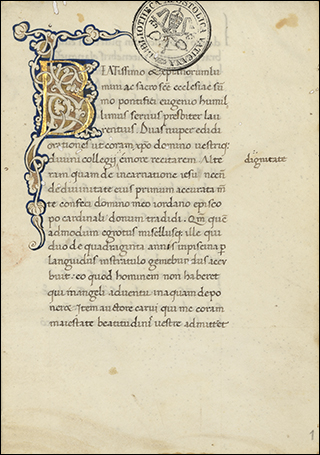 BIBLIOTHECA APOSTOLICA VATICANA
BEATissimo & xp̃ianorum lu
mini ac sacro scẽ ecclesiae sũ
mo pontifici eugenio humil
limus seruus presbiter lau
rentius. Duas nuper edidi
orationes ut coram xp̃o domino uestriq;
diuini collegij ẽmore recitarem. Alte
ram quam de incarnatione iesu necñ
de diuinitate eius primum accurata mẽ
te confeci domino meo iordano episco
po cardinali donum tradidi. Qm̃ quẽ
admodum egrotus misellusq; ille qui
duo de quadraginta annis in piscina p
languidus in stratulo gemebundus accu
buit: eo quod hominem non haberet
qui in angeli aduentu in aquam depo
neret. Item austore carui qui me coram
maiestate beatitudinis uestre admittet
dignitate
1